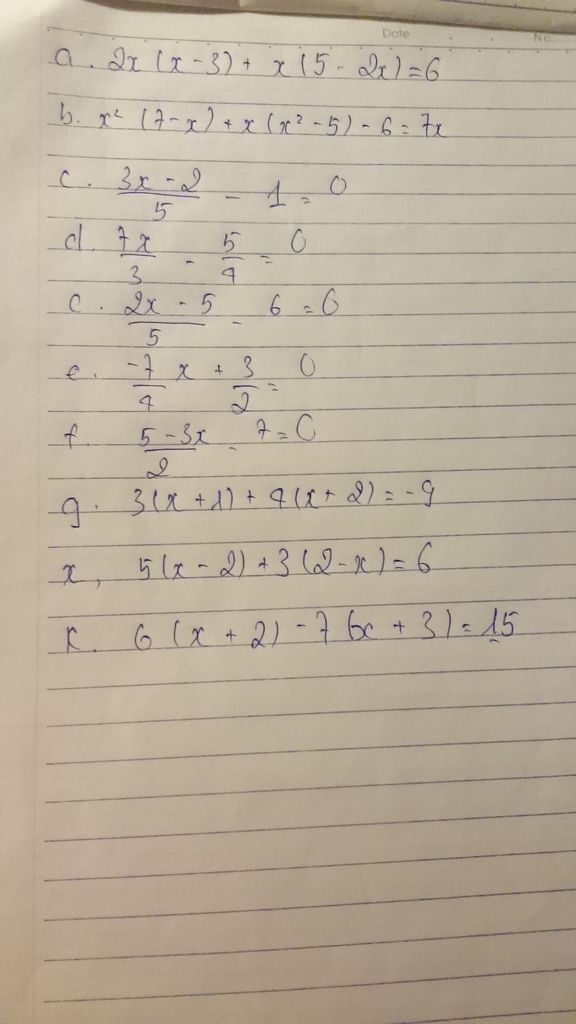 Date No
a. 2x(x-3) + x(5-2x)=6
b. x² (7-x) + x(x²-5) - 6 = 7x
c. 3x-2/5 - 1 = 0
d. 7x/3 - 5/4 = 0
c. 2x-5/5 - 6 = 0
e. -7/4 x + 3/2 = 0
f. 5-3x/2 - 7 = 0
g. 3(x+1) + 4(x+2) = -9
x, 5(x-2) + 3(2-x) = 6
K. 6(x+2) - 7(x+3) = 15